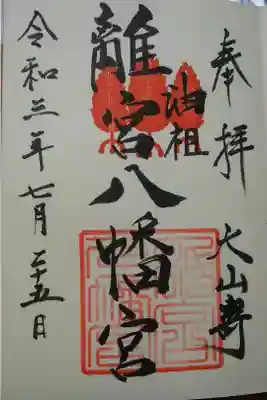 奉拝
大山嵜
油祖
離宮八幡宮
令和三年七月二十五日